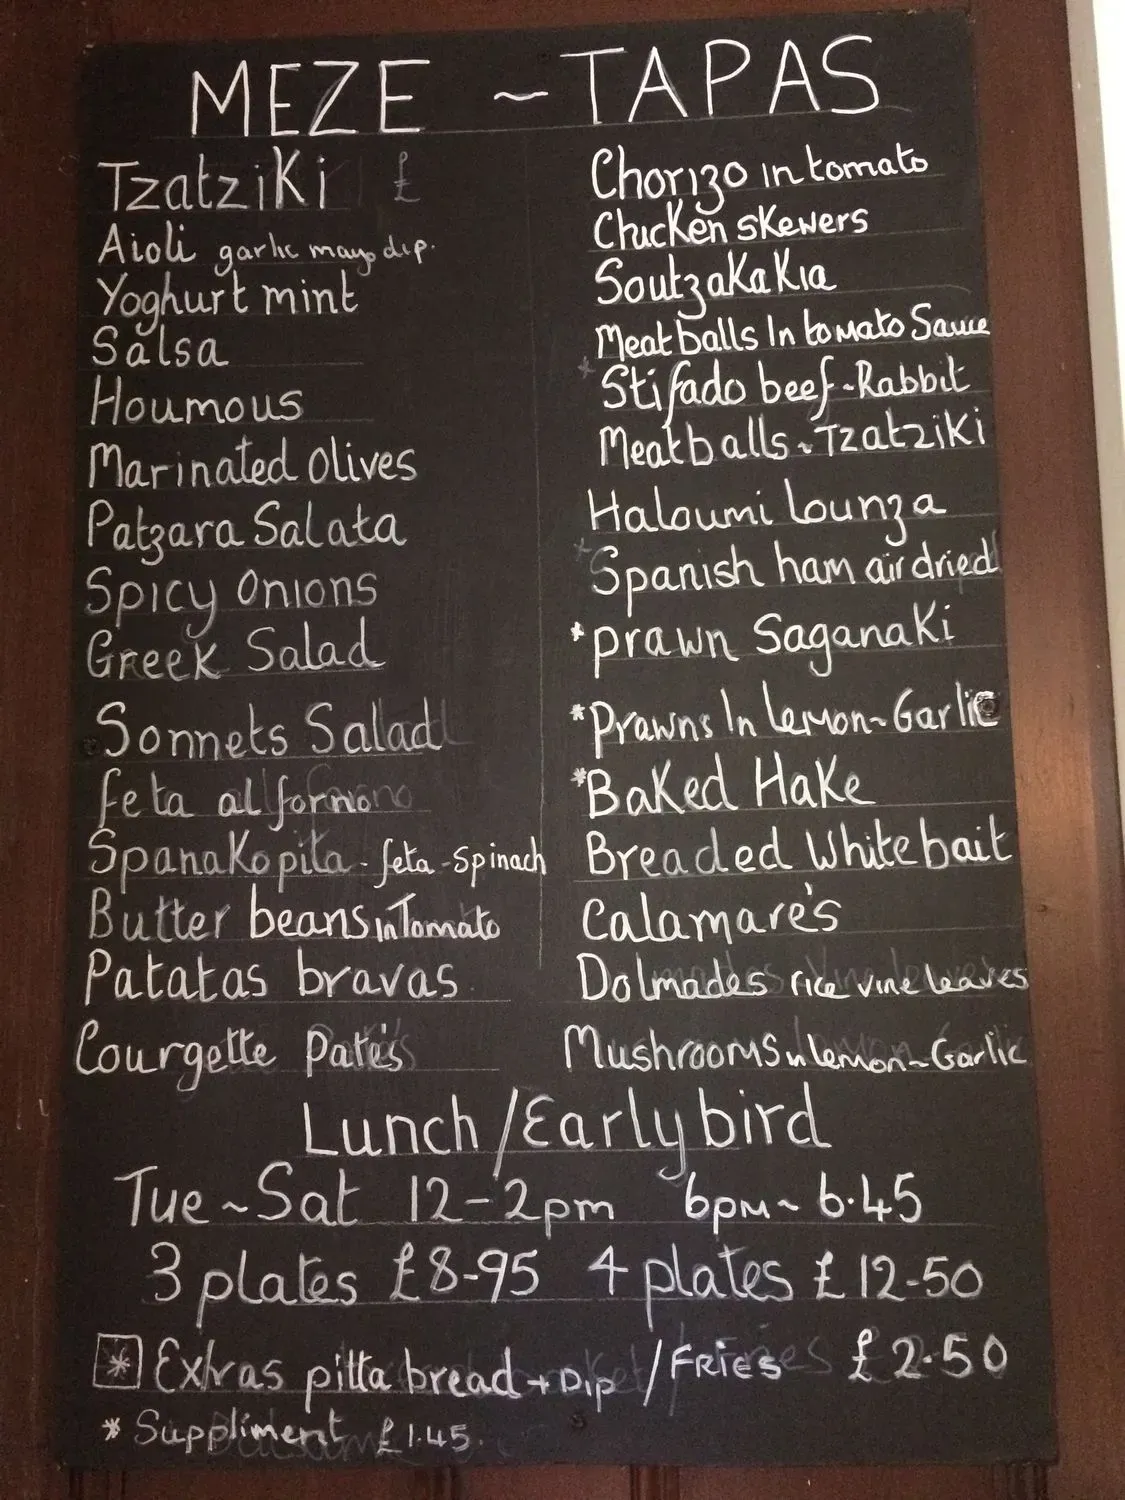 MEZE ~ TAPAS
Tzatziki £
Aioli garlic mayo dip.
Yoghurt mint
Salsa
Houmous
Marinated Olives
Patzara Salata
Spicy Onions
Greek Salad
Sonnets Salad
feta al forno
Spanakopita - feta - Spinach
Butter beans in Tomato
Patatas bravas
Courgette Pate's
Chorizo in tomato
Chicken Skewers
Soutzakakia
Meatballs In tomato Sauce
* Stifado beef ~ Rabbit
Meatballs ~ Tzatziki
Haloumi Lounza
* Spanish ham air dried
* prawn Saganaki
* Prawns In lemon ~ Garlic
* Baked Hake
Breaded Whitebait
Calamare's
Dolmades rice vine leaves
Mushrooms in lemon ~ Garlic
Lunch / Early bird
Tue ~ Sat 12 - 2pm 6pm ~ 6.45
3 plates £8-95 4 plates £12-50
* Extras pitta bread + Dip / FRIES £2.50
* Suppliment £1.45.